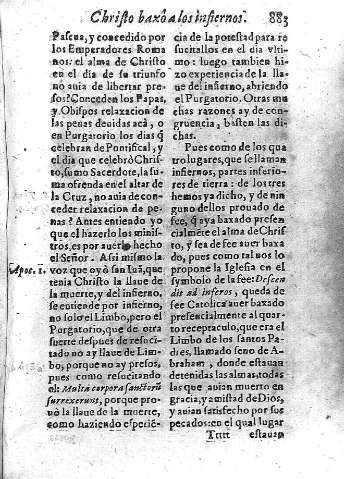 Christo baxò a los infiernos. 883
Pascua, y concedido por
los Emperadores Roma
nos: el alma de Christo
en el dia de su triunfo
no auia de libertar pre-
sos? Conceden los Papas,
y Obispos relaxacion de
las penas deuidas acà, o
en Purgatorio los dias q̃
celebran de Pontifical, y
el dia que celebrò Chris-
to, sumo Sacerdote, la su-
ma ofrenda en el altar de
la Cruz, no auia de con-
ceder relaxacion de pe-
nas? Antes entiendo yo
que el hazerlo los minis-
tros, es por auerlo hecho
el Señor. Assi mismo la
Apoc. 1.
voz que oyò san Iuã, que
tenia Christo la llaue de
la muerte, y del infierno,
se entiende por infierno,
no solo el Limbo, pero el
Purgatorio, que de otra
suerte despues de resuci-
tado no ay llaue de Lim-
bo, porque no ay presos,
pues como resucitando
el: Multa corpora sanctorũ
surrexerunt, porque pro-
uò la llaue de la muerte,
como haziendo esperiẽ-
cia de la potestad para re
sucitallos en el dia vlti-
mo: luego tambien hi-
zo experiencia de la lla-
ue del infierno, abriendo
el Purgatorio. Otras mu
chas razones ay de con-
gruencia, basten las di-
chas.
Pues como de los qua
tro lugares, que se llaman
infiernos, partes inferio-
res de tierra: de los tres
hemos ya dicho, y de nin
guno dellos prouado de
fee, q̃ aya baxado presen-
cialmẽte el alma de Chris-
to, y sea de fee auer baxa-
do, pues como tal nos lo
propone la Iglesia en el
symbolo de la fee: Descen
dit ad inferos, queda de
fee Catolica auer baxado
presencialmente al quar-
to receptaculo, que era el
Limbo de los santos Pa-
dres, llamado seno de A-
braham, donde estauan
detenidas las almas, todas
las que auian muerto en
gracia, y amistad de Dios,
y auian satisfecho por sus
pecados: en el qual lugar
Tttt estauan